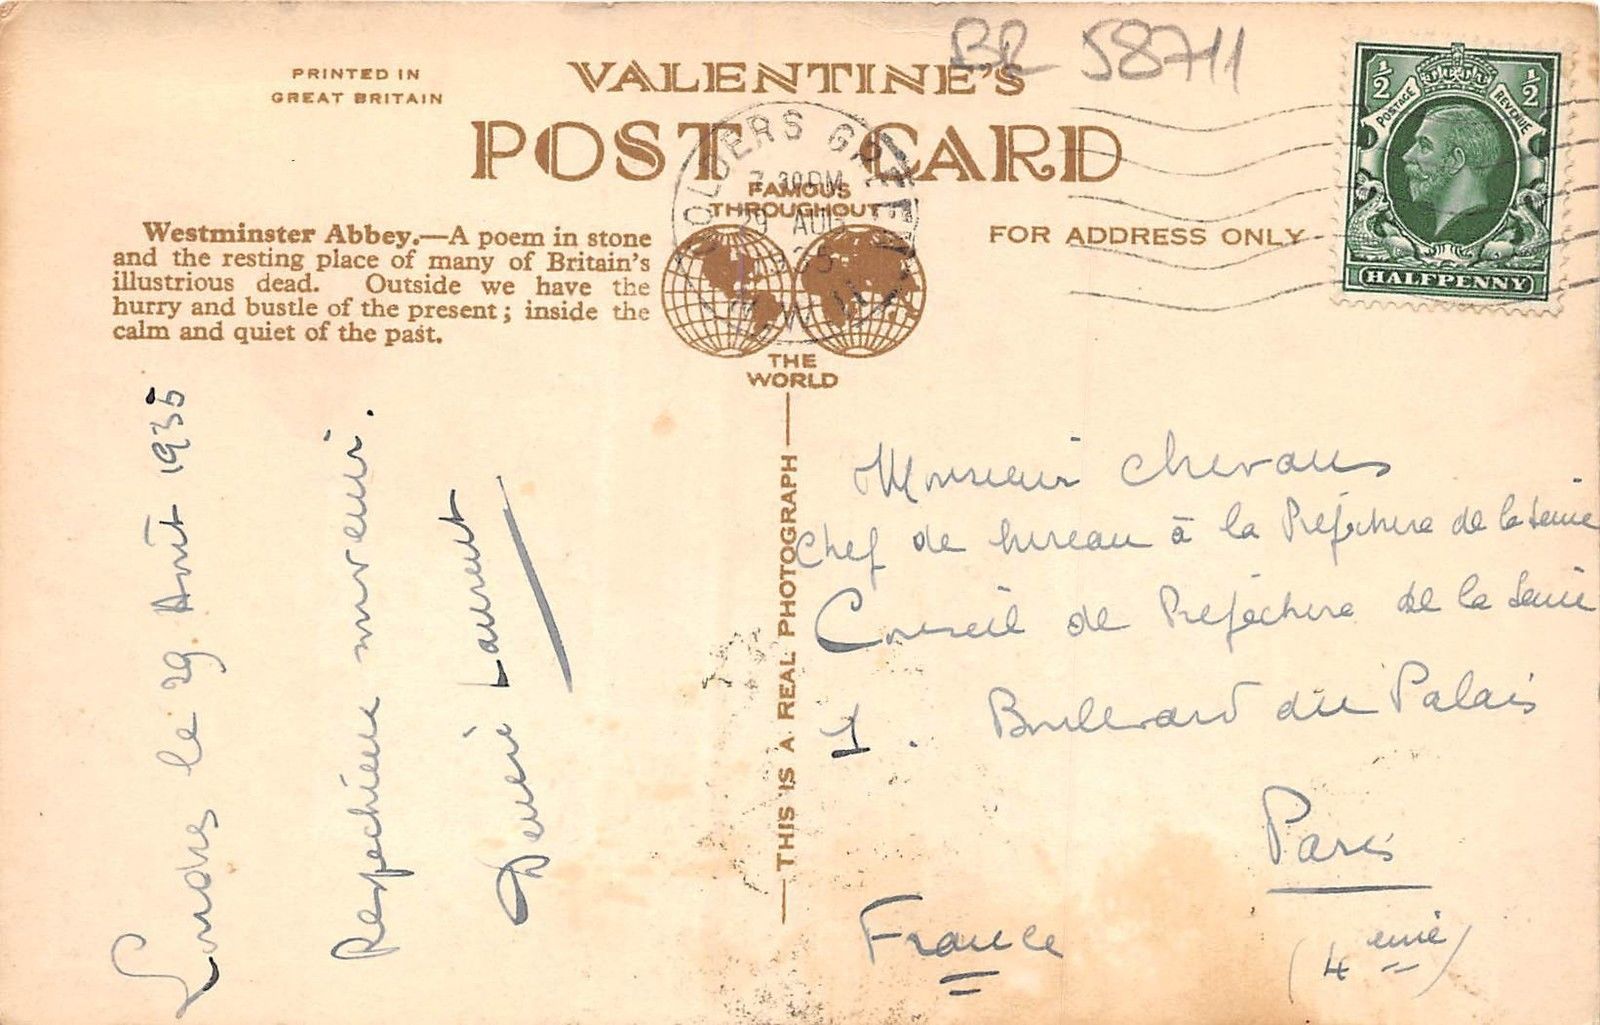 PRINTED IN
GREAT BRITAIN
VALENTINE'S
POST CARD
FAMOUS
THROUGHOUT
THE
WORLD
BR 58711
GOLDERS GREEN
7.30PM
29 AUG
1935
N.W.11
POSTAGE REVENUE
½ ½
HALFPENNY
FOR ADDRESS ONLY
Westminster Abbey.—A poem in stone
and the resting place of many of Britain's
illustrious dead. Outside we have the
hurry and bustle of the present; inside the
calm and quiet of the past.
THIS IS A REAL PHOTOGRAPH
Londres le 29 Août 1935
Respectueux souvenir.
Laurent
Monsieur
Chef de bureau à la Préfecture de la Seine
Conseil de Préfecture de la Seine
1. Boulevard du Palais
Paris
(4eme)
France